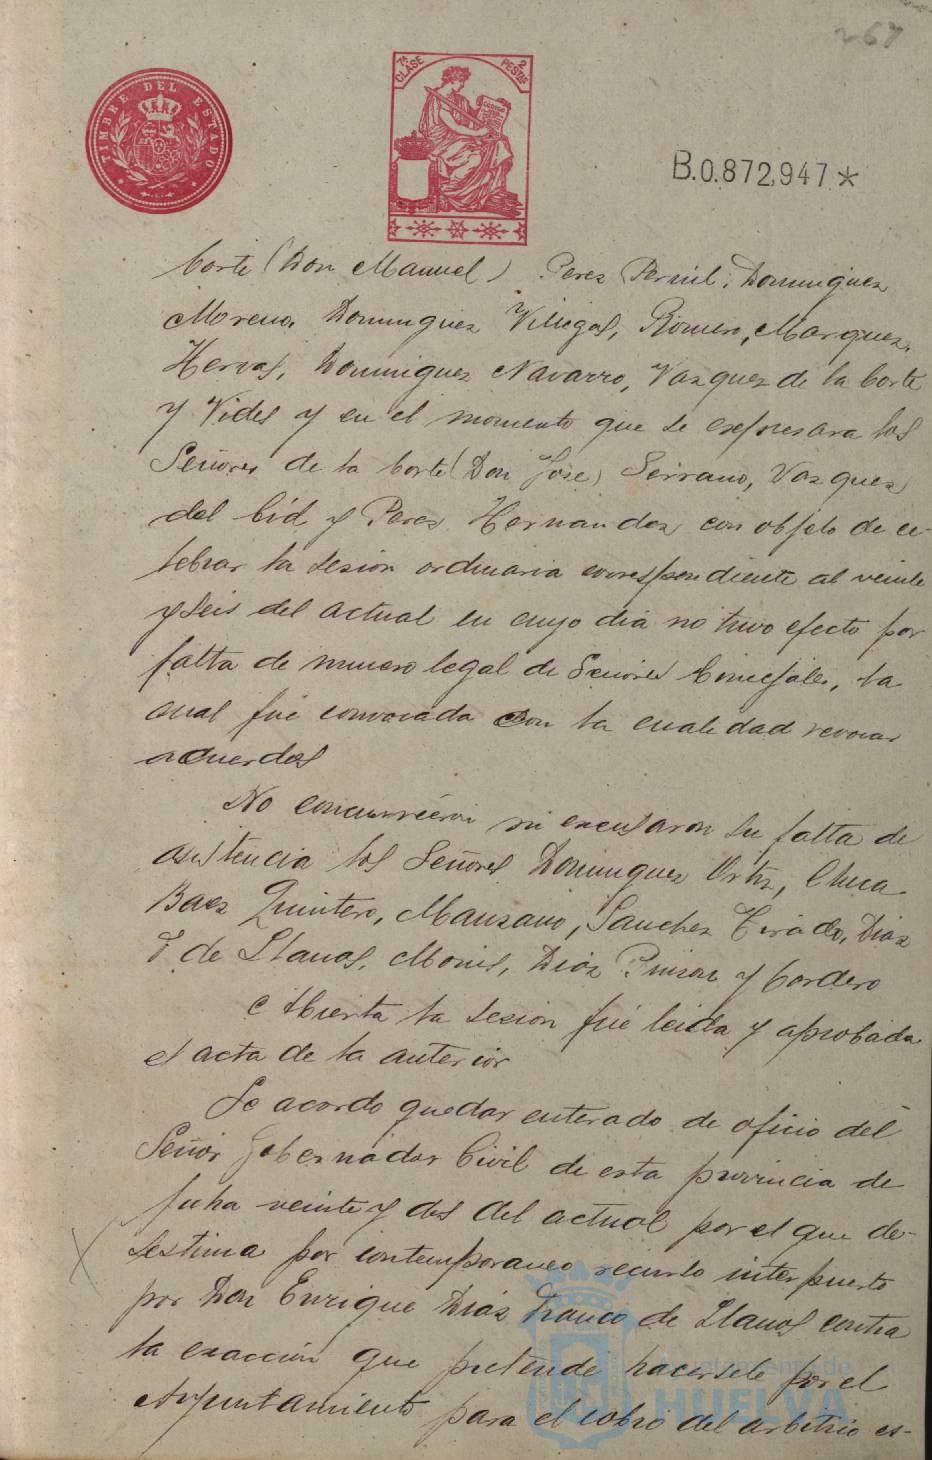 267
TIMBRE DEL ESTADO
7ª CLASE 2 PESTAS
B.0.872,947*
Corte (Don Manuel) Perez Pernil, Dominguez
Moreno, Dominguez Villegas, Romero, Marquez,
Hervas, Dominguez Navarro, Vazquez de la Corte
y Vides y en el momento que se expresara los
Señores de la Corte (Don Jose) Serrano, Vazquez
del Cid y Perez Hernandez con objeto de ce-
lebrar la sesion ordinaria correspondiente al veinte
y seis del actual en cuyo dia no tuvo efecto por
falta de numero legal de Señores Concejales, la
cual fué convocada con la cualidad revocar
acuerdos
No concurrieron ni excusaron su falta de
asistencia los Señores Dominguez Ortiz, Checa
Baez Quintero, Manzano, Sanchez Tirado, Diaz
F. de Llanos, Monis, Diaz Pinzon y Cordero
Abierta la sesion fué leida y aprobada
el acta de la anterior
Se acordo quedar enterado de oficio del
Señor Gobernador Civil de esta provincia de
fecha veinte y dos del actual por el que de-
sestima por contemporaneo recurso interpuesto
por Don Enrique Diaz Franco de Llanos contra
la exacción que pretende hacersele por el
Ayuntamiento para el cobro del arbitrio es-
Ayuntamiento de
HUELVA